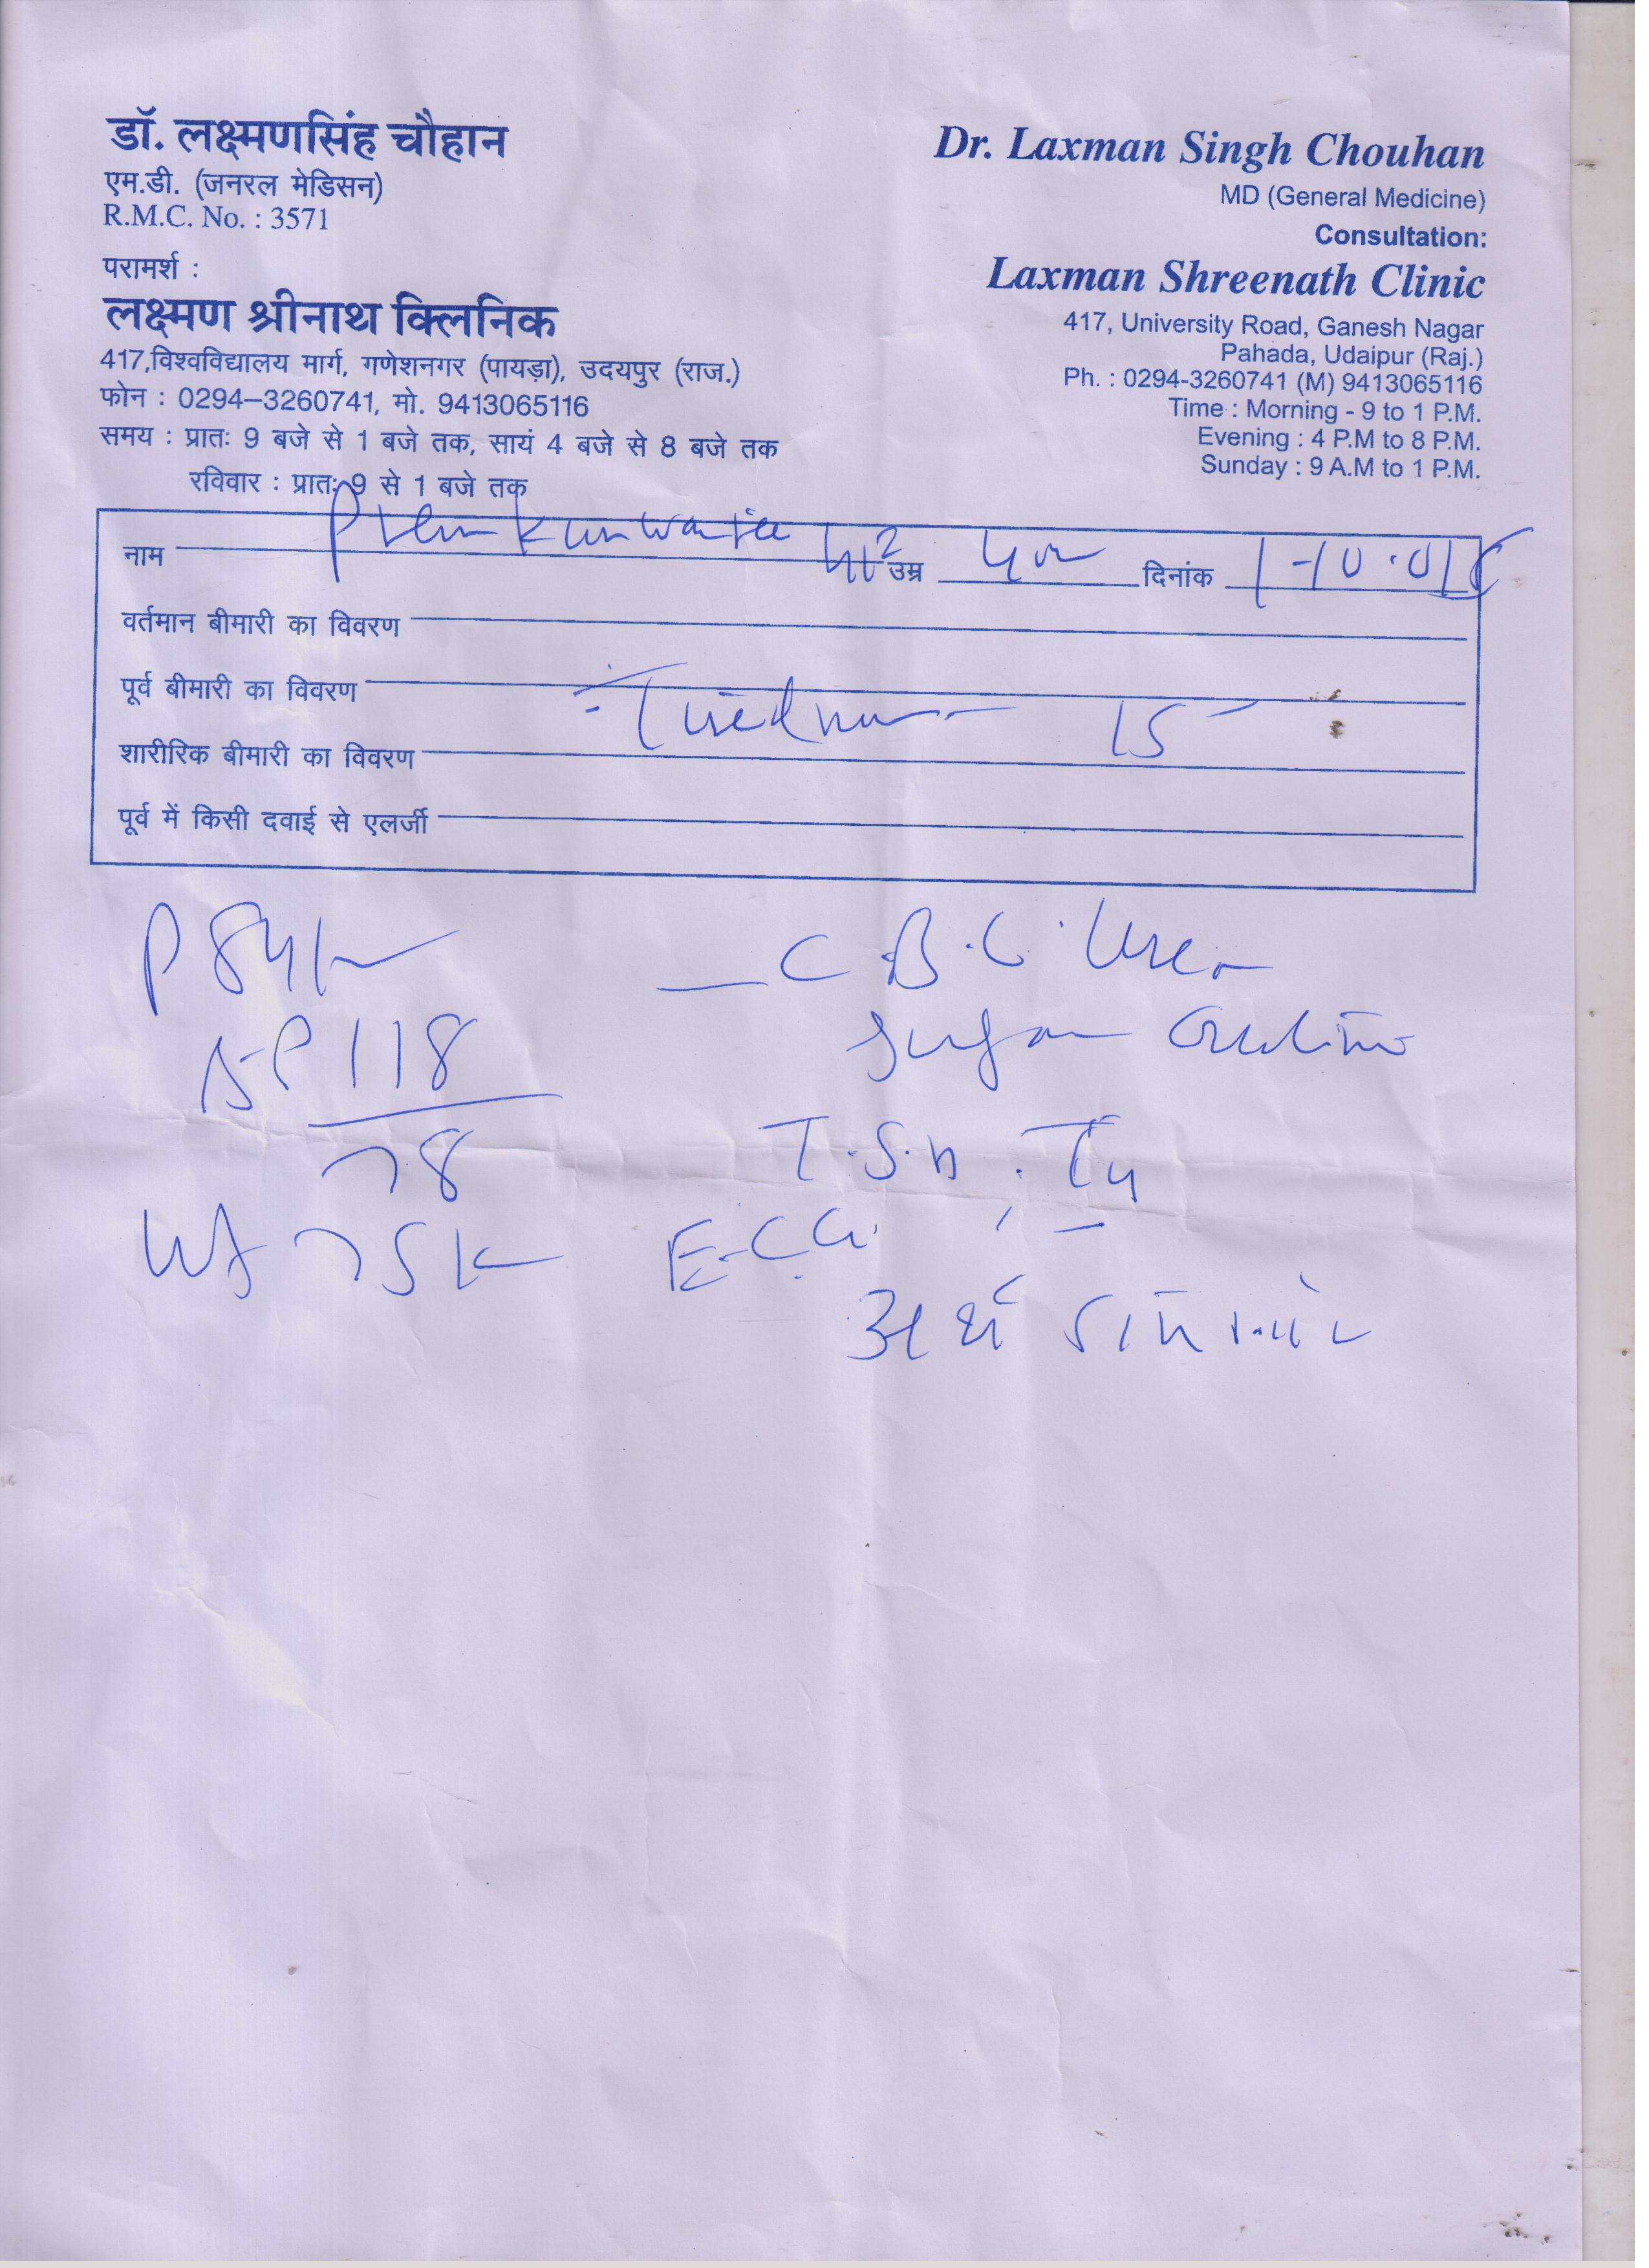 डॉ. लक्ष्मणसिंह चौहान
एम.डी. (जनरल मेडिसन)
R.M.C. No. : 3571
परामर्श :
लक्ष्मण श्रीनाथ क्लिनिक
417,विश्वविद्यालय मार्ग, गणेशनगर (पायड़ा), उदयपुर (राज.)
फोन : 0294–3260741, मो. 9413065116
समय : प्रातः 9 बजे से 1 बजे तक, सायं 4 बजे से 8 बजे तक
रविवार : प्रातः 9 से 1 बजे तक
Dr. Laxman Singh Chouhan
MD (General Medicine)
Consultation:
Laxman Shreenath Clinic
417, University Road, Ganesh Nagar
Pahada, Udaipur (Raj.)
Ph. : 0294-3260741 (M) 9413065116
Time : Morning - 9 to 1 P.M.
Evening : 4 P.M to 8 P.M.
Sunday : 9 A.M to 1 P.M.
नाम उम्र दिनांक
वर्तमान बीमारी का विवरण
पूर्व बीमारी का विवरण
शारीरिक बीमारी का विवरण
पूर्व में किसी दवाई से एलर्जी
P
B.P 118
78
C.B.C. Urea
Sugar Creatinine
T.S.H. T4
E.C.G.